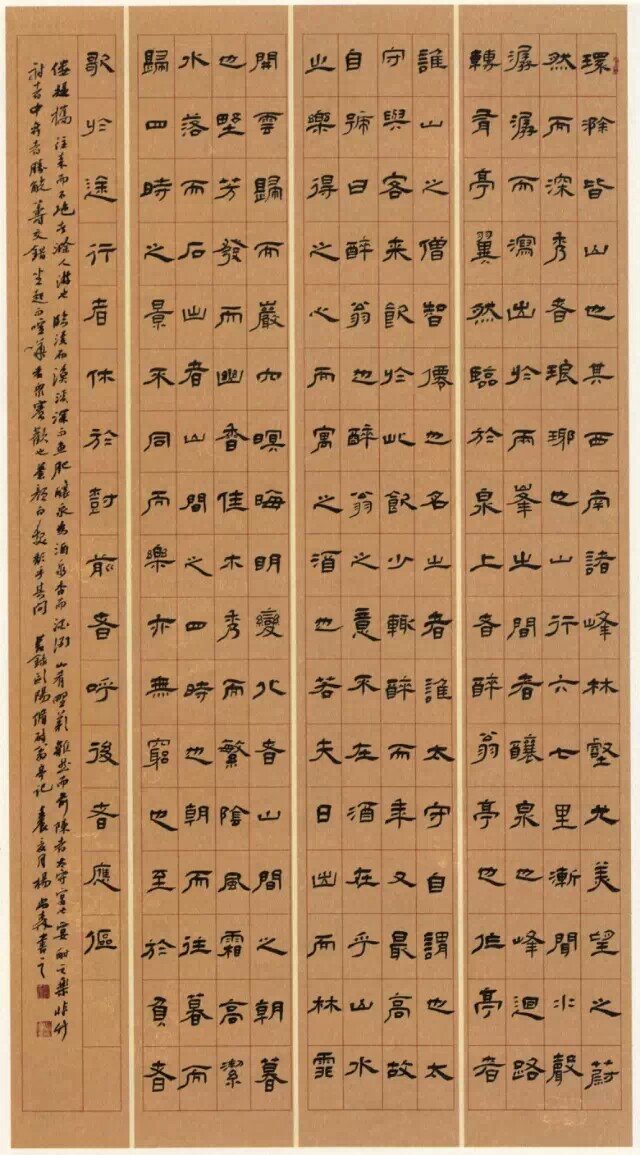 環滁皆山也其西南諸峰林壑尤美望之蔚
然而深秀者琅琊也山行六七里漸聞水聲
潺潺而瀉出於兩峯之間者釀泉也峰迴路
轉有亭翼然臨於泉上者醉翁亭也作亭者
誰山之僧智僊也名之者誰太守自謂也太
守與客來飲於此飲少輒醉而年又最高故
自號曰醉翁也醉翁之意不在酒在乎山水
之樂得之心而寓之酒也若夫日出而林霏
開雲歸而巖穴暝晦明變化者山間之朝暮
也野芳發而幽香佳木秀而繁陰風霜高潔
水落而石出者山間之四時也朝而往暮而
歸四時之景不同而樂亦無窮也至於負者
歌於途行者休於樹前者呼後者應傴
僂提攜往來而不絕者滁人游也臨溪而漁溪深而魚肥釀泉為酒泉香而酒洌山肴野蔌雜然而前陳者太守宴也宴酣之樂非竹
射者中弈者勝觥籌交錯坐起而喧嘩者眾賓歡也蒼顏白髮頹乎其間 錄歐陽脩醉翁亭記 月楊 森書